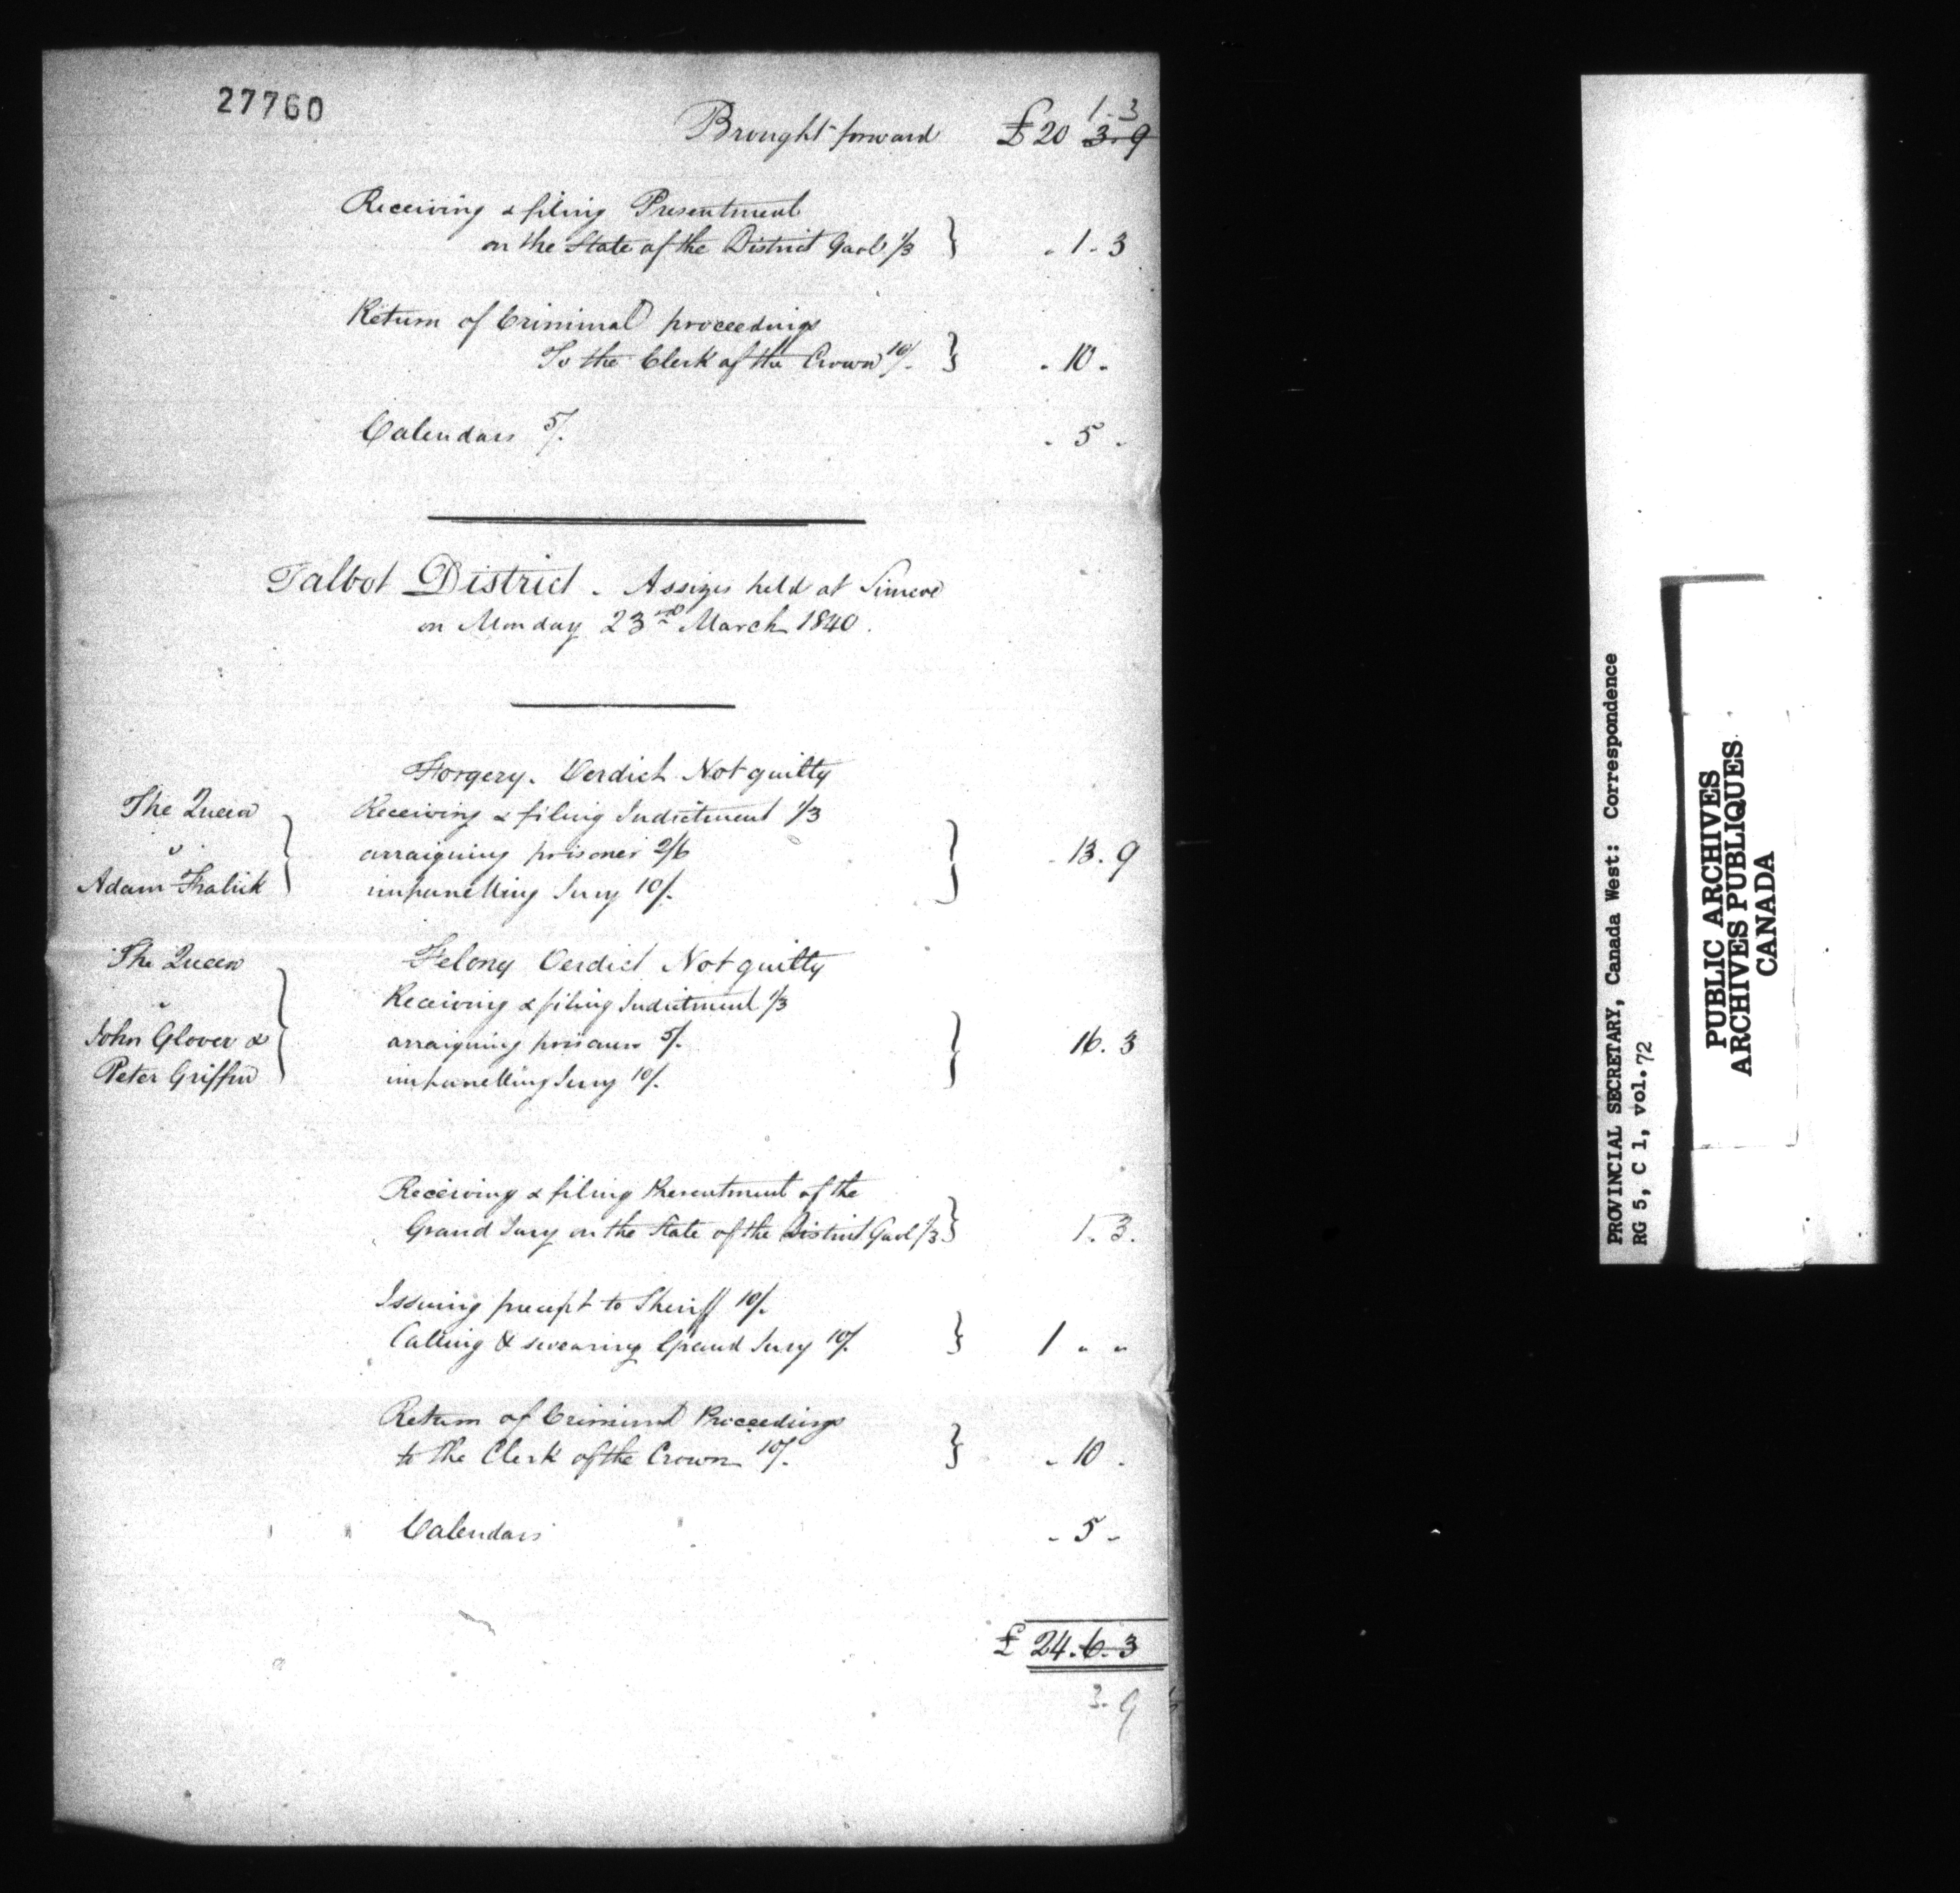 27760
1. 3
Brought forward £20 3. 9
Receiving & filing Presentment
on the State of the District Gaol 1/3 } . 1. 3
Return of Criminal proceedings
To the Clerk of the Crown 10/. } . 10 .
Calendars 5/. . 5 .
Talbot District . Assizes held at Simcoe
on Monday 23rd March 1840.
Forgery. Verdict Not guilty
The Queen Receiving & filing Indictment 1/3
v. arraigning prisoner 2/6 } . 13. 9
Adam impanelling Jury 10/.
The Queen Felony Verdict Not guilty
Receiving & filing Indictment 1/3
John Glover & arraigning prisoners 5/. } 16. 3
Peter Griffin impanelling Jury 10/.
Receiving & filing Presentment of the
Grand Jury on the State of the District Gaol 1/3 } 1. 3.
Issuing precept to Sheriff 10/.
Calling & swearing Grand Jury 10/. } 1 " "
Return of Criminal Proceedings
to the Clerk of the Crown 10/. } . 10 .
Calendars . 5 .
£ 24. 6. 3
3. 9
PROVINCIAL SECRETARY, Canada West: Correspondence
RG 5, C 1, vol. 72
PUBLIC ARCHIVES
ARCHIVES PUBLIQUES
CANADA